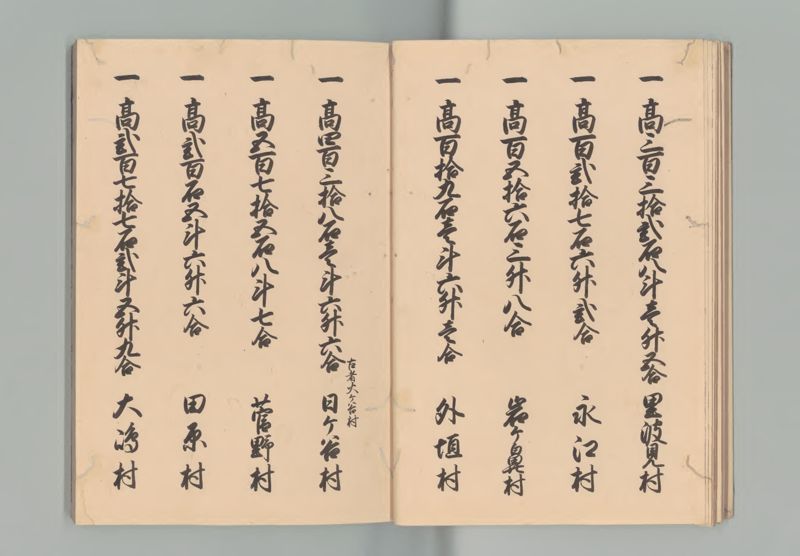 一 高三百三拾弐石八斗壱升五合 里波見村
一 高百弐拾七石六升弐合 永江村
一 高百五拾六石三升八合 岩ケ鼻村
一 高百拾九石壱斗六升壱合 外垣村
一 高四百三拾八石壱斗六升六合 日ケ谷村
古者大ケ谷村
一 高五百七拾五石八斗七合 菅野村
一 高弐百石五斗六升六合 田原村
一 高弐百七拾七石弐斗五升九合 大嶋村